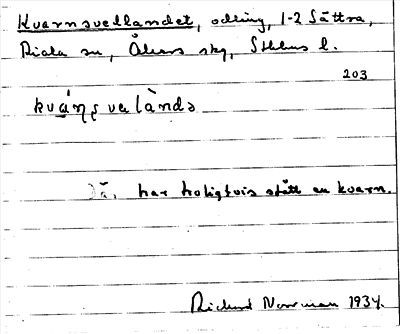 Kvarnsvellandet, odling, 1-2 Sättra,
Riala sn, Åkers skg, Sthlms l.
203
kvá̀ŋsvelàndə
Då, har troligtvis stått en kvarn.
Richard Norrman 1934.